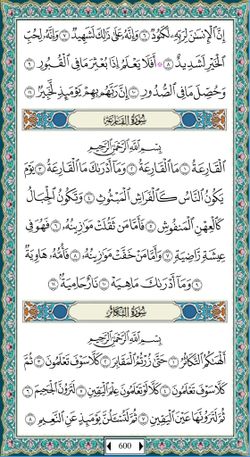 إِنَّ ٱلْإِنسَٰنَ لِرَبِّهِۦ لَكَنُودٌ ٦ وَإِنَّهُۥ عَلَىٰ ذَٰلِكَ لَشَهِيدٌ ٧ وَإِنَّهُۥ لِحُبِّ
ٱلْخَيْرِ لَشَدِيدٌ ٨ ۞ أَفَلَا يَعْلَمُ إِذَا بُعْثِرَ مَا فِى ٱلْقُبُورِ ٩
وَحُصِّلَ مَا فِى ٱلصُّدُورِ ١٠ إِنَّ رَبَّهُم بِهِمْ يَوْمَئِذٍ لَّخَبِيرٌۢ ١١
سُورَةُ القَارِعَةِ
بِسْمِ ٱللَّهِ ٱلرَّحْمَٰنِ ٱلرَّحِيمِ
ٱلْقَارِعَةُ ١ مَا ٱلْقَارِعَةُ ٢ وَمَآ أَدْرَىٰكَ مَا ٱلْقَارِعَةُ ٣ يَوْمَ
يَكُونُ ٱلنَّاسُ كَٱلْفَرَاشِ ٱلْمَبْثُوثِ ٤ وَتَكُونُ ٱلْجِبَالُ
كَٱلْعِهْنِ ٱلْمَنفُوشِ ٥ فَأَمَّا مَن ثَقُلَتْ مَوَٰزِينُهُۥ ٦ فَهُوَ فِى
عِيشَةٍ رَّاضِيَةٍ ٧ وَأَمَّا مَنْ خَفَّتْ مَوَٰزِينُهُۥ ٨ فَأُمُّهُۥ هَاوِيَةٌ
٩ وَمَآ أَدْرَىٰكَ مَا هِيَهْ ١٠ نَارٌ حَامِيَةٌۢ ١١
سُورَةُ التَّكَاثُرِ
بِسْمِ ٱللَّهِ ٱلرَّحْمَٰنِ ٱلرَّحِيمِ
أَلْهَىٰكُمُ ٱلتَّكَاثُرُ ١ حَتَّىٰ زُرْتُمُ ٱلْمَقَابِرَ ٢ كَلَّا سَوْفَ تَعْلَمُونَ ٣ ثُمَّ
كَلَّا سَوْفَ تَعْلَمُونَ ٤ كَلَّا لَوْ تَعْلَمُونَ عِلْمَ ٱلْيَقِينِ ٥ لَتَرَوُنَّ ٱلْجَحِيمَ ٦
ثُمَّ لَتَرَوُنَّهَا عَيْنَ ٱلْيَقِينِ ٧ ثُمَّ لَتُسْـَٔلُنَّ يَوْمَئِذٍ عَنِ ٱلنَّعِيمِ ٨
600